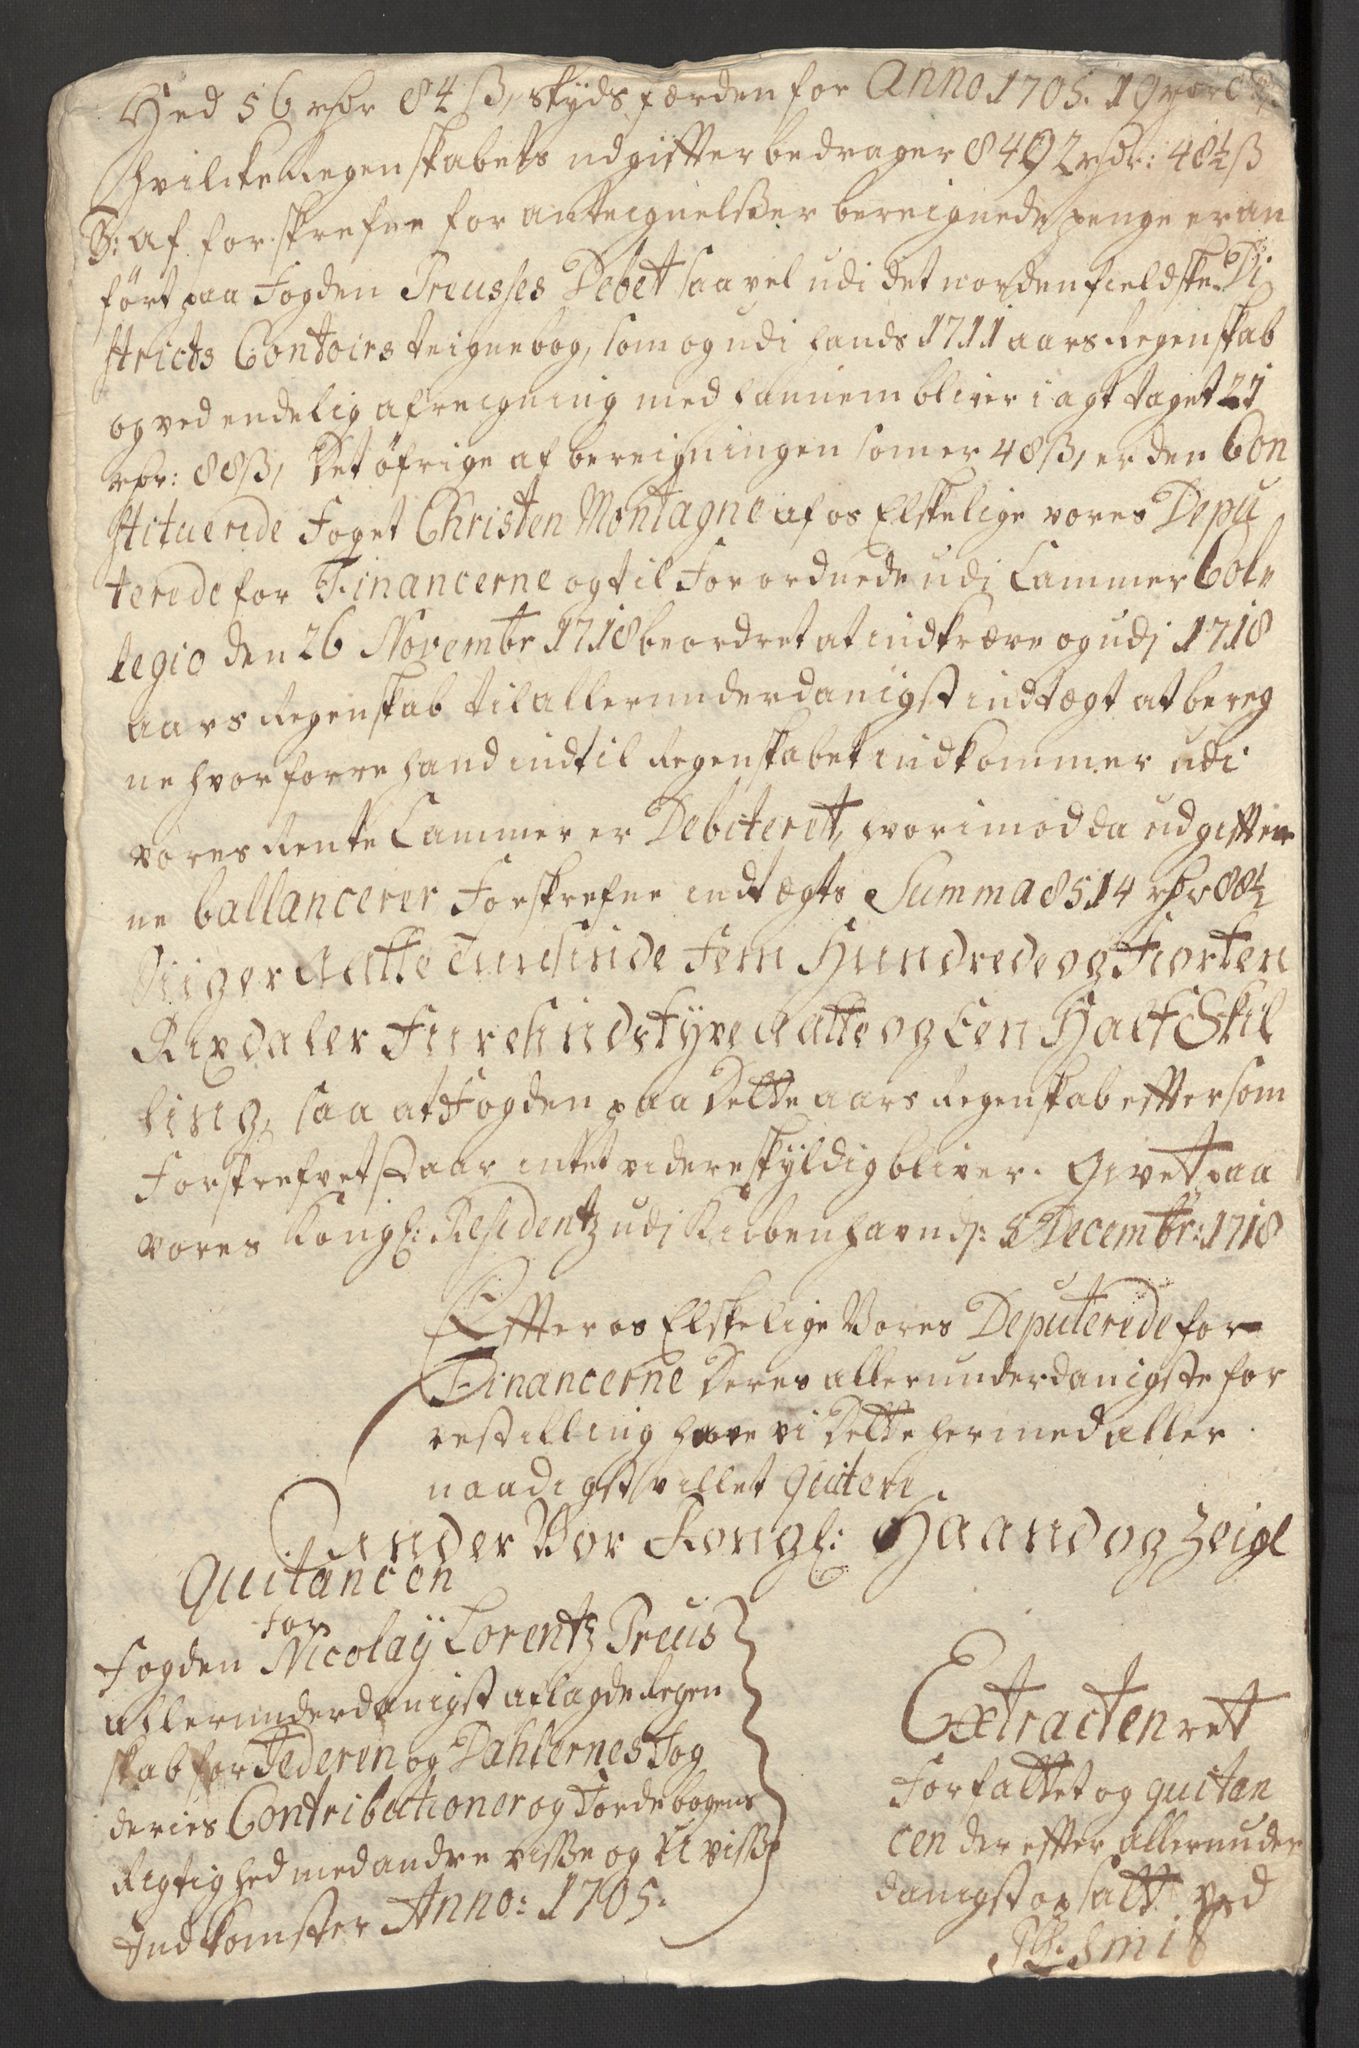 Hed 56 rdr 84 ß, skyds færden for Anno 1705. 19 rdr
hvilcke Regenskabets udgiffter bedrager 8492 rdr: 48½ ß
B: af forskrefne for anteignelßer bereignede penge er an
ført paa Fogden Preusses Debet saa vel udi det nordenfieldske Di
stricts Contoirs teignebog, som og udi hands 1711 aars Regenskab
og ved endelig afreigning med hannem bliver i agt taget 21
rdr: 88 ß, Det øfrige af bereigningen som er 48 ß, er den Con
stituerede Foget Christen Montagne af os Elskelige vores Depu
terede for Financerne og til Forordnede udi Cammer Col
legio den 26 Novembr 1718 beordret at indkræve og udj 1718
aars Regenskab til allerunderdanigst indtægt at bereg
ne hvorforre hand indtil Regenskabet indkommer udi
vores Rente Cammer er Debiteret, hvorimod da udgiffter
ne ballancerer Forskrefne indtægts Summa 8514 rdr 88½
Siiger Aatte Tuusinde Fem Hundrede og Fiorten
Rixdaler Fiiresindstyve Aatte og Een Half Skil
ling, saa at Fogden paa Dette aars Regenskab efftersom
Forskrefvet staar intet videre skyldig bliver. Givet paa
vores Kongl: Residentz udj Kiibenhavn d: 5 Decembr: 1718
Effter os Elskelige Vores Deputerede for
Financerne Deres allerunderdanigste for
restilling have vi Dette hermed aller
naadigst villet qvitere
Under Vor Kongl: Haand og Zeigl
Quitancen
for
Fogden Nicolaÿ Lorentz Preus
allerunderdanigst aflagde Regen
skab for Jederen og Dahlernes Fog
deries Contributioner og Jordebogens
Rigtighed med andre visse og U visse
Indkomster Anno: 1705:
Extracten ret
Forfattet og quitan
cen der effter allerunder
danigst opsatt ved
Smit